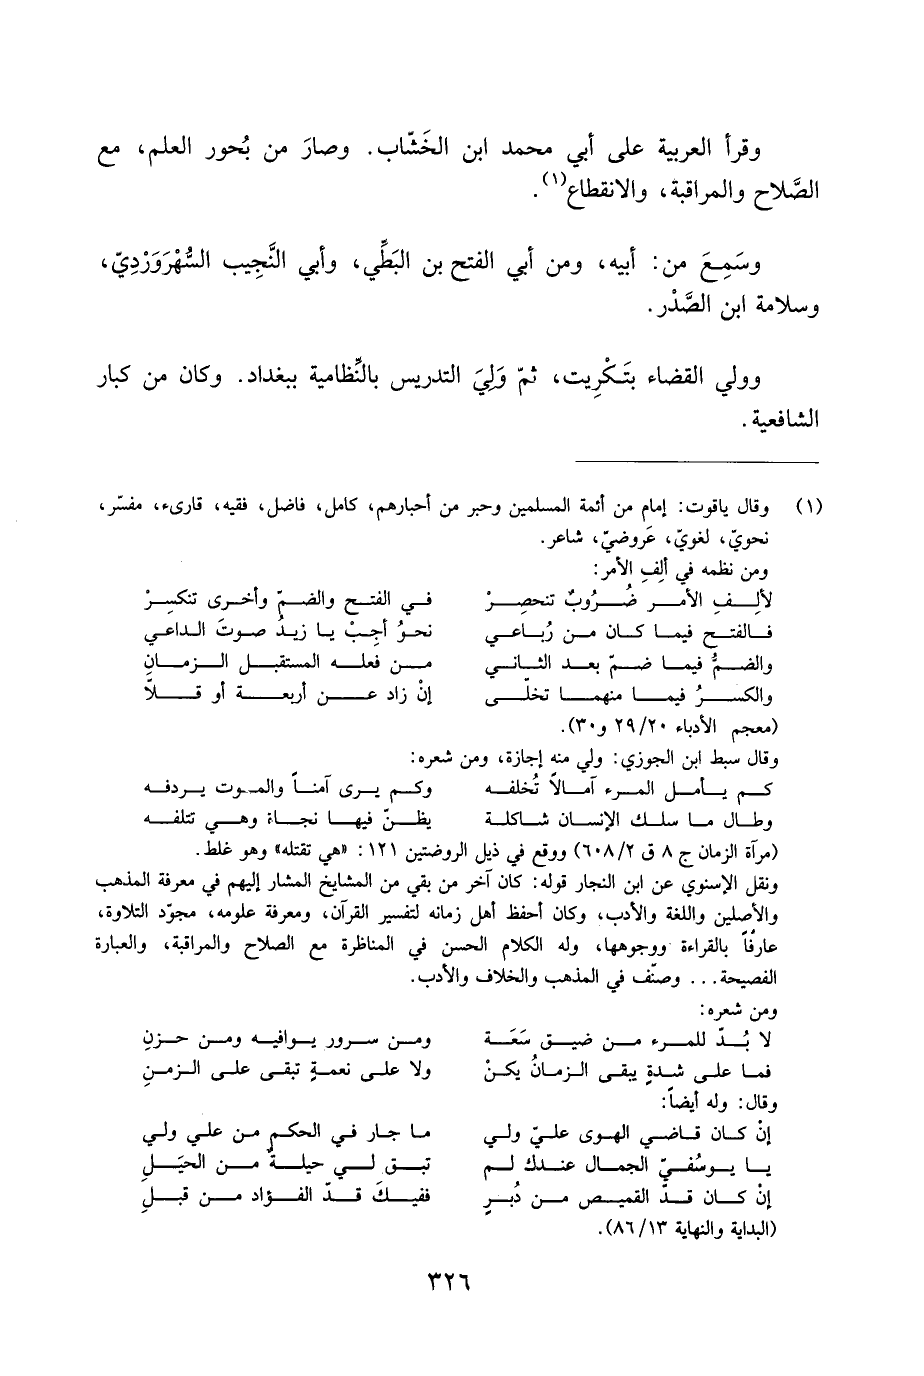 وقرأ العربية على أبي محمد ابن الخَشّاب. وصارَ من بُحور العلم، مع
الصَّلاح والمراقبة، والانقطاع(١).
وسَمِعَ من: أبيه، ومن أبي الفتح بن البَطِّي، وأبي النَّجِيب السُّهْرَوَرْدِيّ،
وسلامة ابن الصَّدْر.
وولي القضاء بتَكْرِيت، ثمّ وَلِيَ التدريس بالنِّظامية ببغداد. وكان من كبار
الشافعية.
(١) وقال ياقوت: إمام من أئمة المسلمين وحبر من أحبارهم، كامل، فاضل، فقيه، قارىء، مفسّر،
نحويّ، لغويّ، عَروضيّ، شاعر.
ومن نظمه في ألِفِ الأمر:
لألِفِ الأمر ضُرُوبٌ تنحصِرْ في الفتح والضمّ وأخرى تنكسِرْ
فالفتح فيما كان من رُباعي نحوُ أجِبْ يا زيدُ صوتَ الداعي
والضمُّ فيما ضمّ بعد الثاني من فعله المستقبل الزمانِ
والكسرُ فيما منهما تخلّى إنْ زاد عن أربعة أو قلاّ
(معجم الأدباء ٢٠/٢٩ و٣٠).
وقال سبط ابن الجوزي: ولي منه إجازة، ومن شعره:
كم يأمل المرء آمالاً تُخلفه وكم يرى آمناً والموت يردفه
وطال ما سلك الإنسان شاكلة يظنّ فيها نجاة وهي تتلفه
(مرآة الزمان ج ٨ ق ٢/٦٠٨) ووقع في ذيل الروضتين ١٢١: «هي تقتله» وهو غلط.
ونقل الإسنوي عن ابن النجار قوله: كان آخر من بقي من المشايخ المشار إليهم في معرفة المذهب
والأصلين واللغة والأدب، وكان أحفظ أهل زمانه لتفسير القرآن، ومعرفة علومه، مجوّد التلاوة،
عارفاً بالقراءة ووجوهها، وله الكلام الحسن في المناظرة مع الصلاح والمراقبة، والعبارة
الفصيحة... وصنّف في المذهب والخلاف والأدب.
ومن شعره:
لا بُدّ للمرء من ضيق سَعَة ومن سرور يوافيه ومن حزنِ
فما على شدةٍ يبقى الزمانُ يكنْ ولا على نعمةٍ تبقى على الزمنِ
وقال: وله أيضاً:
إنْ كان قاضي الهوى عليّ ولي ما جار في الحكم من علي ولي
يا يوسُفيّ الجمال عندك لم تبق لي حيلةٌ من الحيَلِ
إنْ كان قدّ القميص من دُبرٍ ففيكَ قدّ الفؤاد من قبلِ
(البداية والنهاية ١٣/٨٦).
٣٢٦